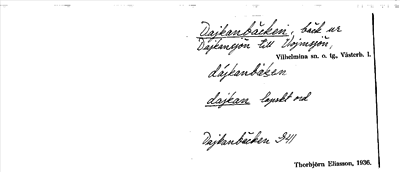 Dajkanbäcken, bäck ur
Dajkansjön till Vojmsjön,
Vilhelmina sn. o. tg., Västerb. l.
dájkanbäken
dajkan lapskt ord
Dajkanbäcken S41
Thorbjörn Eliasson, 1936.